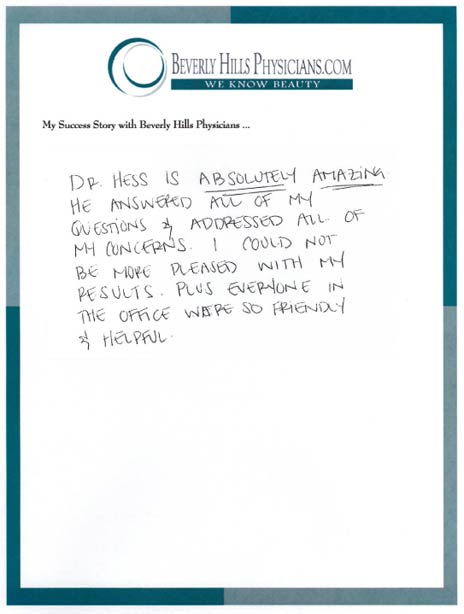 BEVERLY HILLS PHYSICIANS.COM
WE KNOW BEAUTY
My Success Story with Beverly Hills Physicians ...
DR. HESS IS ABSOLUTELY AMAZING
HE ANSWERED ALL OF MY
QUESTIONS & ADDRESSED ALL OF
MY CONCERNS. I COULD NOT
BE MORE PLEASED WITH MY
RESULTS. PLUS EVERYONE IN
THE OFFICE WERE SO FRIENDLY
& HELPFUL.